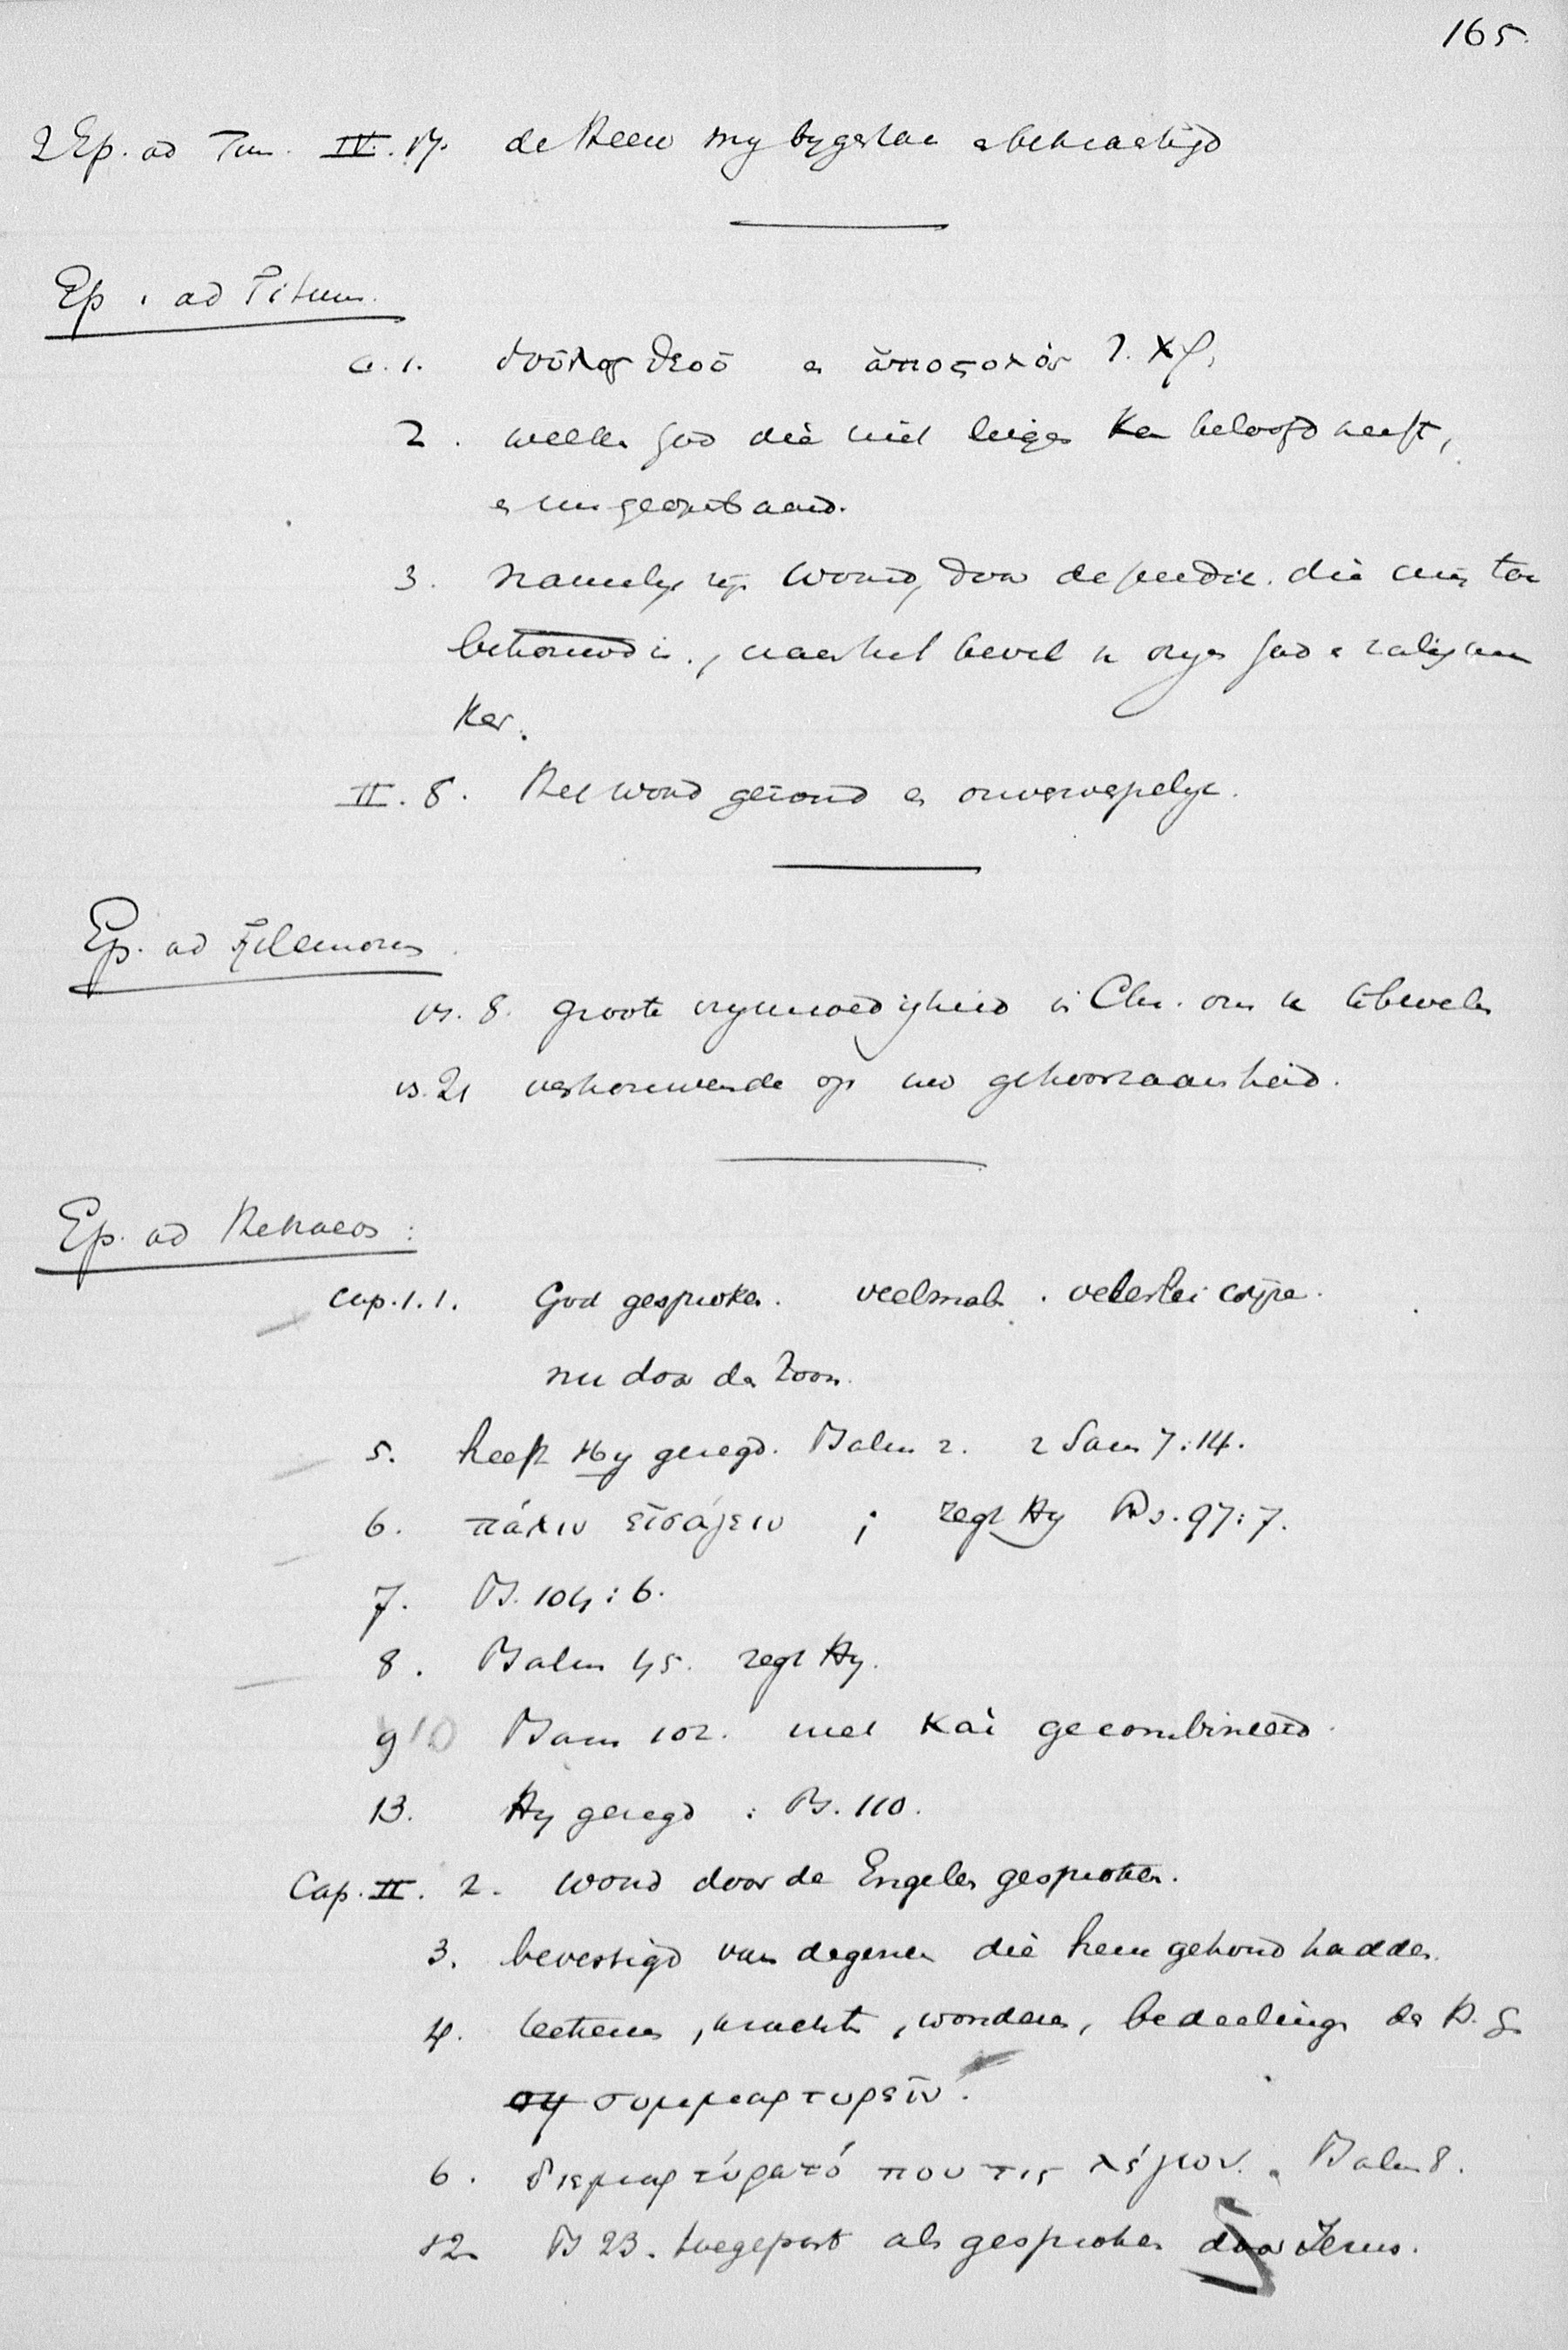 165.
2 Ep. ad Tim. IV. 17. de Heer my bygestaan & bekrachtigd
Ep. ad Titum.
c. 1. δοῦλος θεοῦ en ἀποστολὸς I. Χρ.
2. welke God die niet liegen kan beloofd heeft,
en nu geopenbaard.
3. namelyk zyn Woord, door de predik. die my toe
betrouwd is, naar het bevel v onzen God & zaligma
ker.
II. 8. Het woord gezond en onverwerpelyk.
Ep. ad Filemonem
vs. 8. groote vrymoedigheid in Chr. om u te bevelen
vs. 21 vertrouwende op uw gehoorzaamheid.
Ep. ad Hebraeos:
Cap. 1. 1. God gesproken. veelmals. velerlei wijze.
nu door den Zoon.
5. heeft Hy gezegd. Psalm 2. 2 Sam 7:14.
6. πάλιν εἰσάγειν ; zegt Hy Ps. 97:7.
7. Ps. 104:6.
8. Psalm 45. zegt Hy.
9 10 Psam 102. met Καὶ gecombineerd.
13. Hy gezegd : Ps. 110.
Cap. II. 2. woord door de Engelen gesproken.
3. bevestigd van degenen die hem gehoord hadden.
4. teekenen, krachten, wonderen, bedeelingen des H. Gs
συ συμμαρτυρεῖν.
6. διεμαρτύρατό που τις λέγων. Psalm 8.
12 Ps 23. toegepast als gesproken door Jezus.